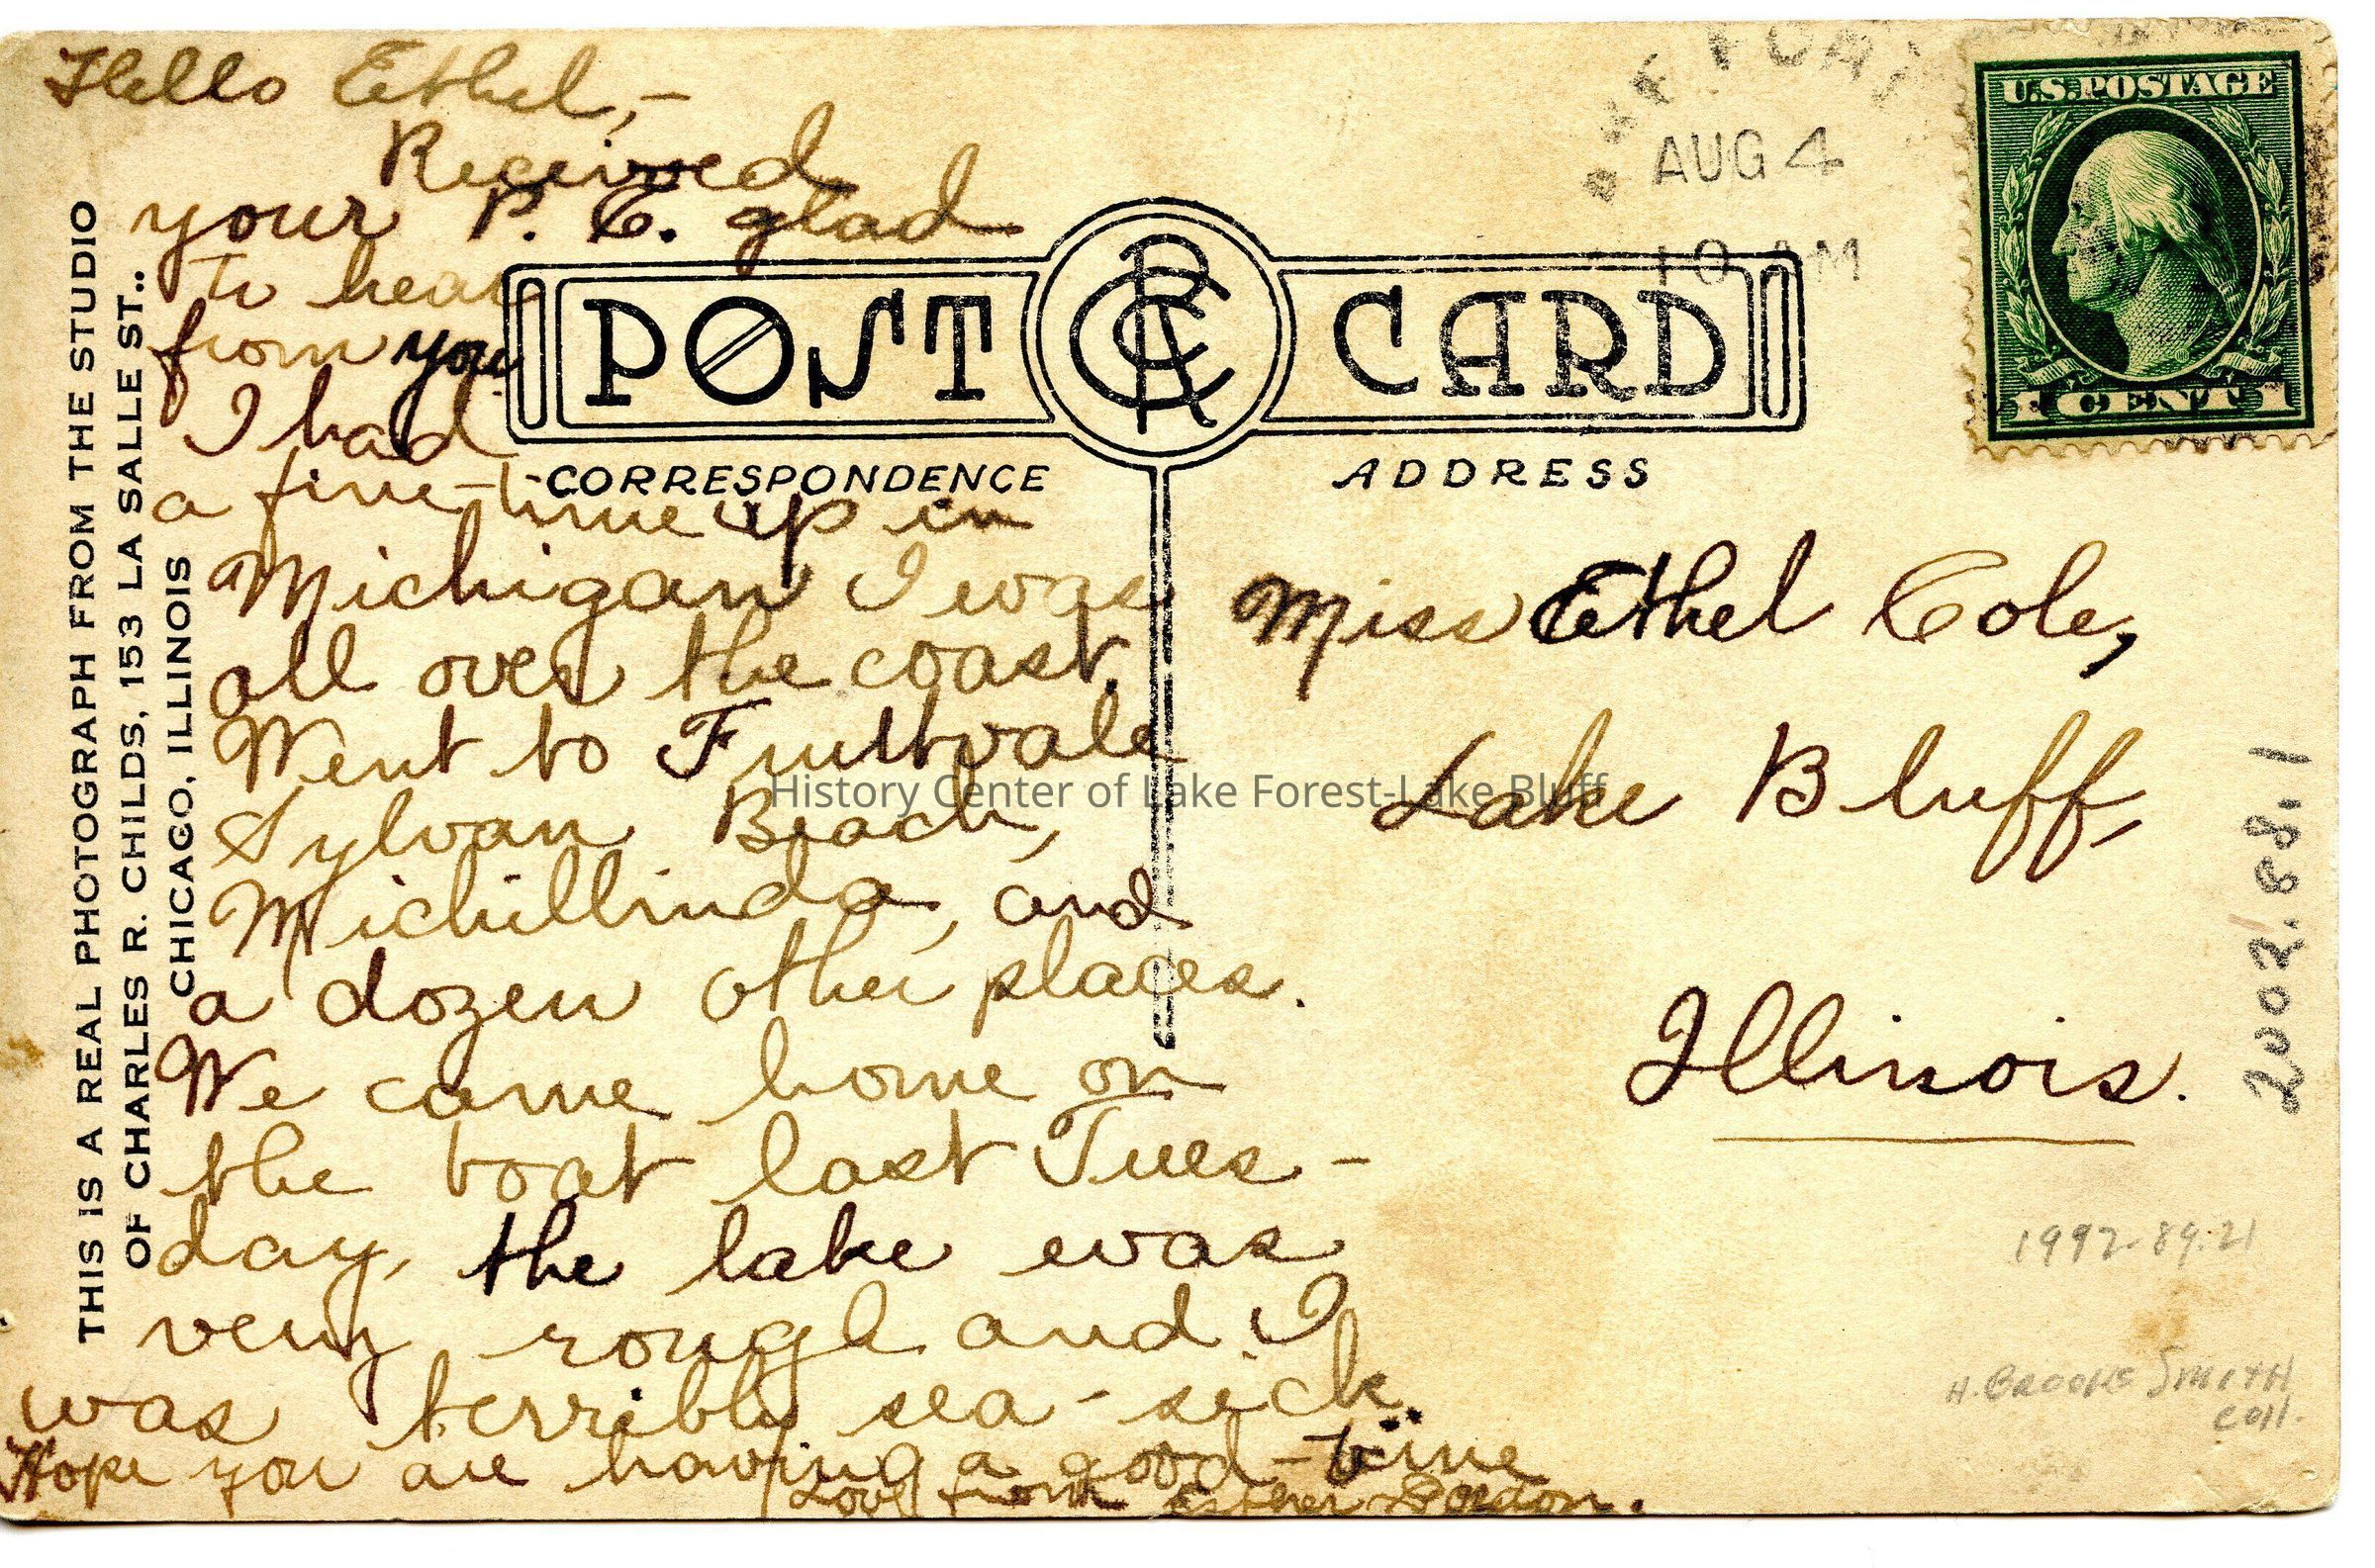 Hello Ethel,-
Received
your P. C. glad
to hear
from you
I had
a fine-time up in
Michigan I was
all over the coast.
Went to Fruitvale
Sylvan Beach,
Michillinda, and
a dozen other places.
We came home on
the boat last Tues-
day, the lake was
very rough and I
was terribly sea-sick.
Hope you are having a good-time
Love from Esther
THIS IS A REAL PHOTOGRAPH FROM THE STUDIO
OF CHARLES R. CHILDS, 153 LA SALLE ST..
CHICAGO, ILLINOIS
POST CARD
CORRESPONDENCE
ADDRESS
AUG 4
10 AM
U.S. POSTAGE
Miss Ethel Cole,
Lake Bluff,
Illinois.
History Center of Lake Forest-Lake Bluff
2002.68.1
1992.89.21
H. BROOKE SMITH
COll.